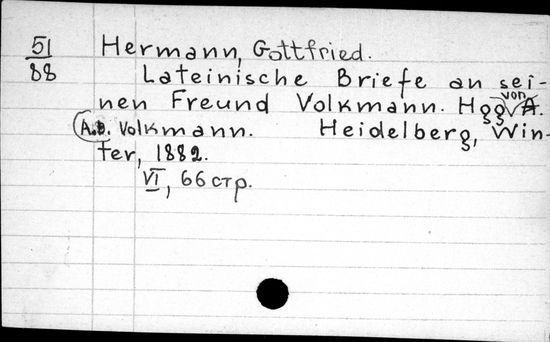 51
88
Hermann, Gottfried.
Lateinische Briefe an sei-
nen Freund Volkmann. Hgg von
A.D. Volkmann. Heidelberg, Win-
ter, 1882.
VI, 66 стр.